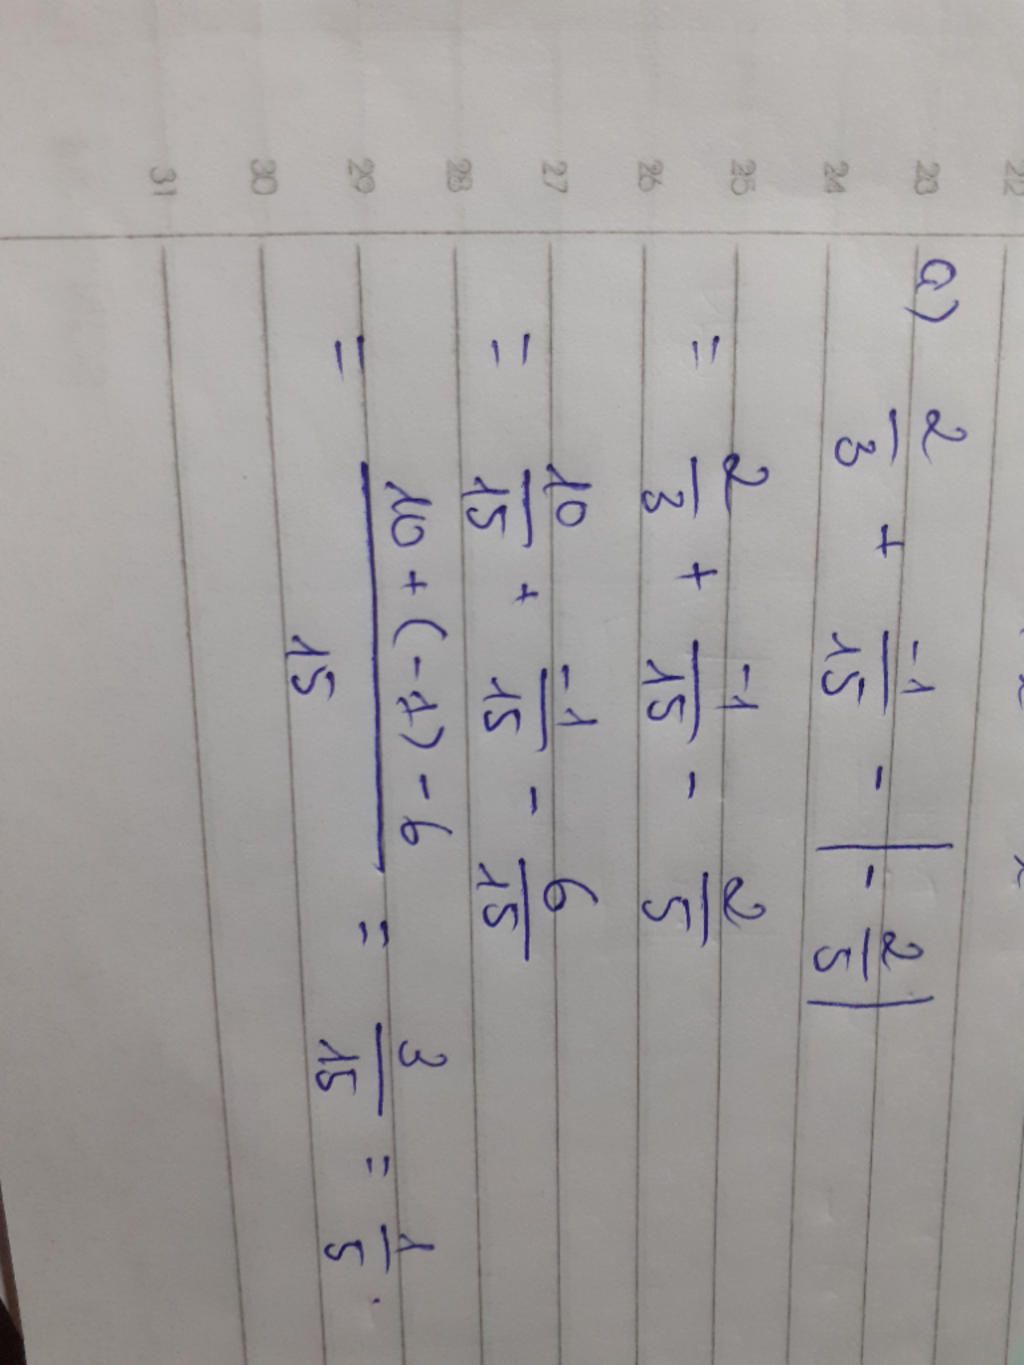 22
23
24
25
26
27
28
29
30
31
a) 2/3 + -1/15 - |-2/5|
= 2/3 + -1/15 - 2/5
= 10/15 + -1/15 - 6/15
= 10 + (-1) - 6 / 15 = 3/15 = 1/5.